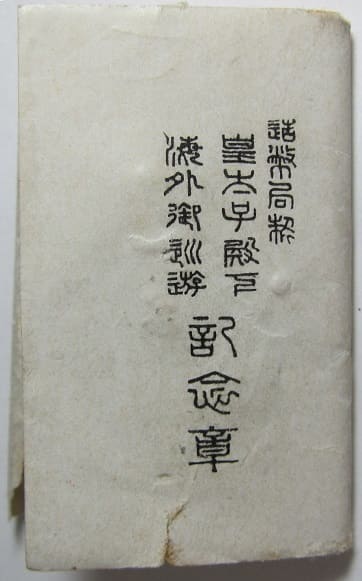 造幣局製
皇太子殿下
海外御巡遊
記念章